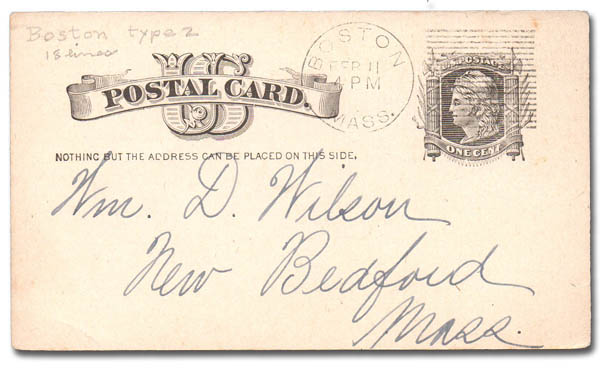 Boston type 2
18 lines
US
POSTAL CARD.
BOSTON
FEB 11
4 PM
MASS.
U.S. POSTAGE
ONE CENT
NOTHING BUT THE ADDRESS CAN BE PLACED ON THIS SIDE.
Wm. D. Wilson
New Bedford
Mass.